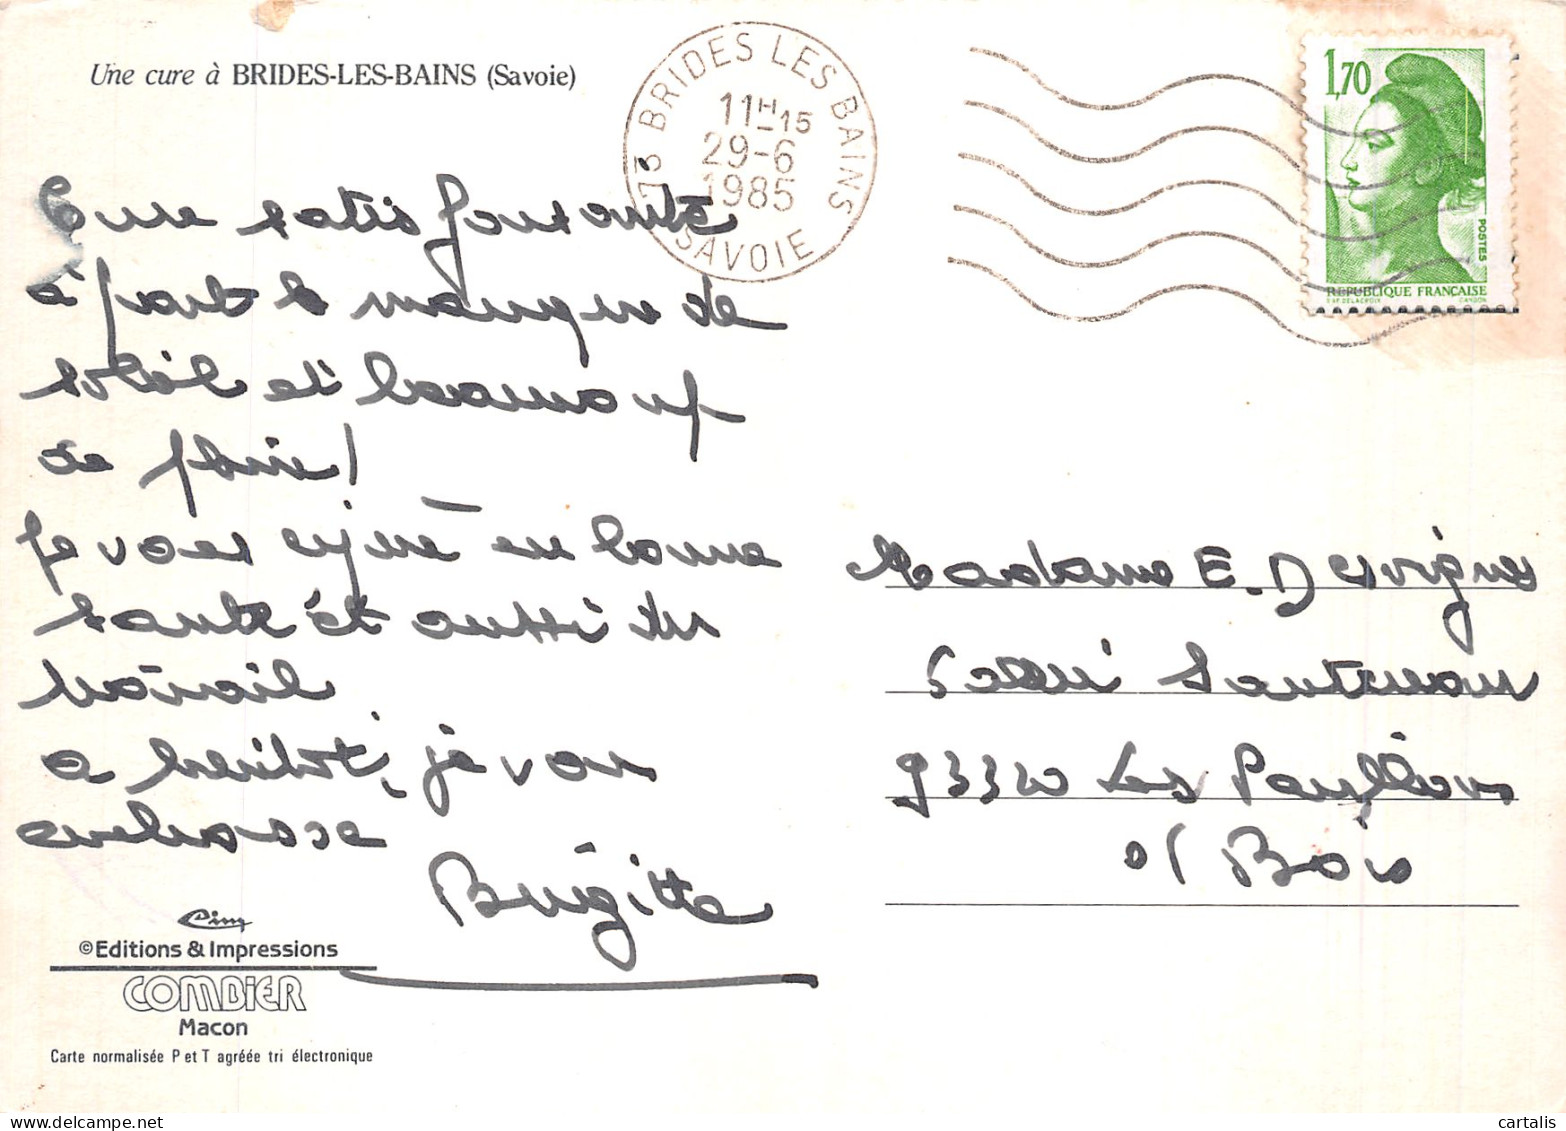 Une cure à BRIDES-LES-BAINS (Savoie)
73 BRIDES LES BAINS
11H15
29-6
1985
SAVOIE
1,70
POSTES
REPUBLIQUE FRANÇAISE
D'AP. DELACROIX GANDON
Cure satisfaisante
à part le manque de
soleil et beaucoup
de pluie!
Je vous espère en bonne
santé et aussi du
travail
a bientôt, je vous
embrasse
Brigitte
Madame E. Desvignes
93320 Les Pavillons
s/ Bois
Cim
©Editions & Impressions
COMBIER
Macon
Carte normalisée P et T agréée tri électronique
cartalis
www.delcampe.net